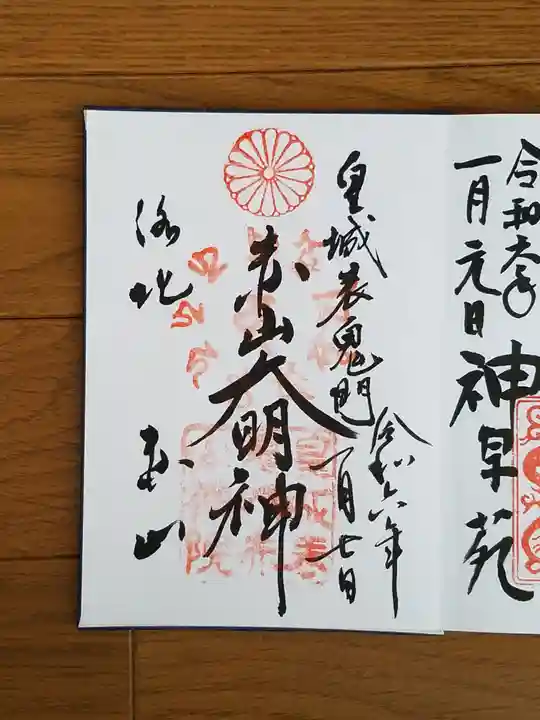 令和六年
一月元日
神泉苑
皇城表鬼門
令和六年
一月七日
赤山大明神
洛北
赤山